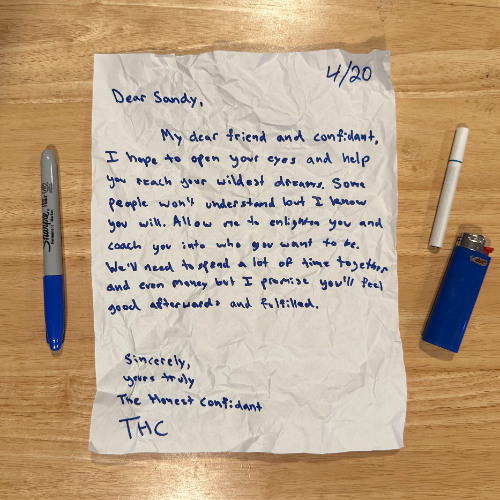 4/20
Dear Sandy,
My dear friend and confidant,
I hope to open your eyes and help
you reach your wildest dreams. Some
people won't understand but I know
you will. Allow me to enlighten you and
coach you into who you want to be.
We'll need to spend a lot of time together
and even money but I promise you'll feel
good afterwards and fulfilled.
Sincerely,
yours truly
The Honest Confidant
THC
Sharpie
BIC